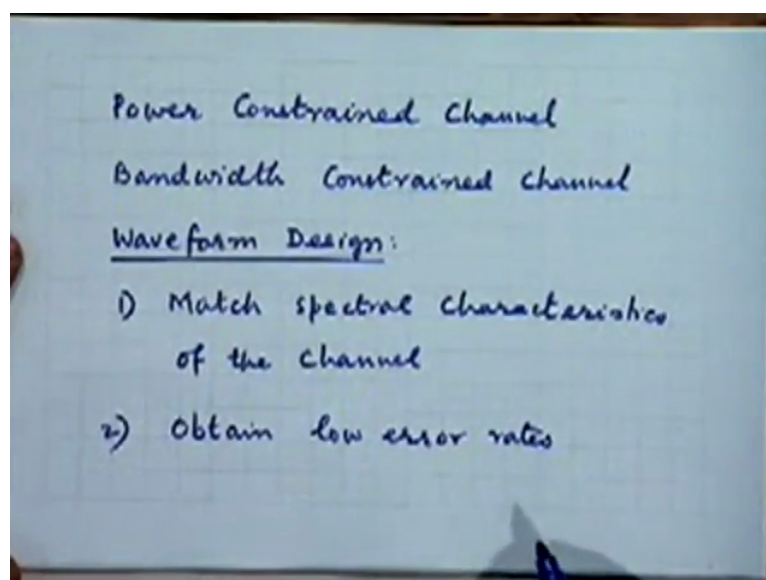 Power Constrained Channel
Bandwidth Constrained Channel
Waveform Design:
1) Match spectral characteristics
of the channel
2) Obtain low error rates